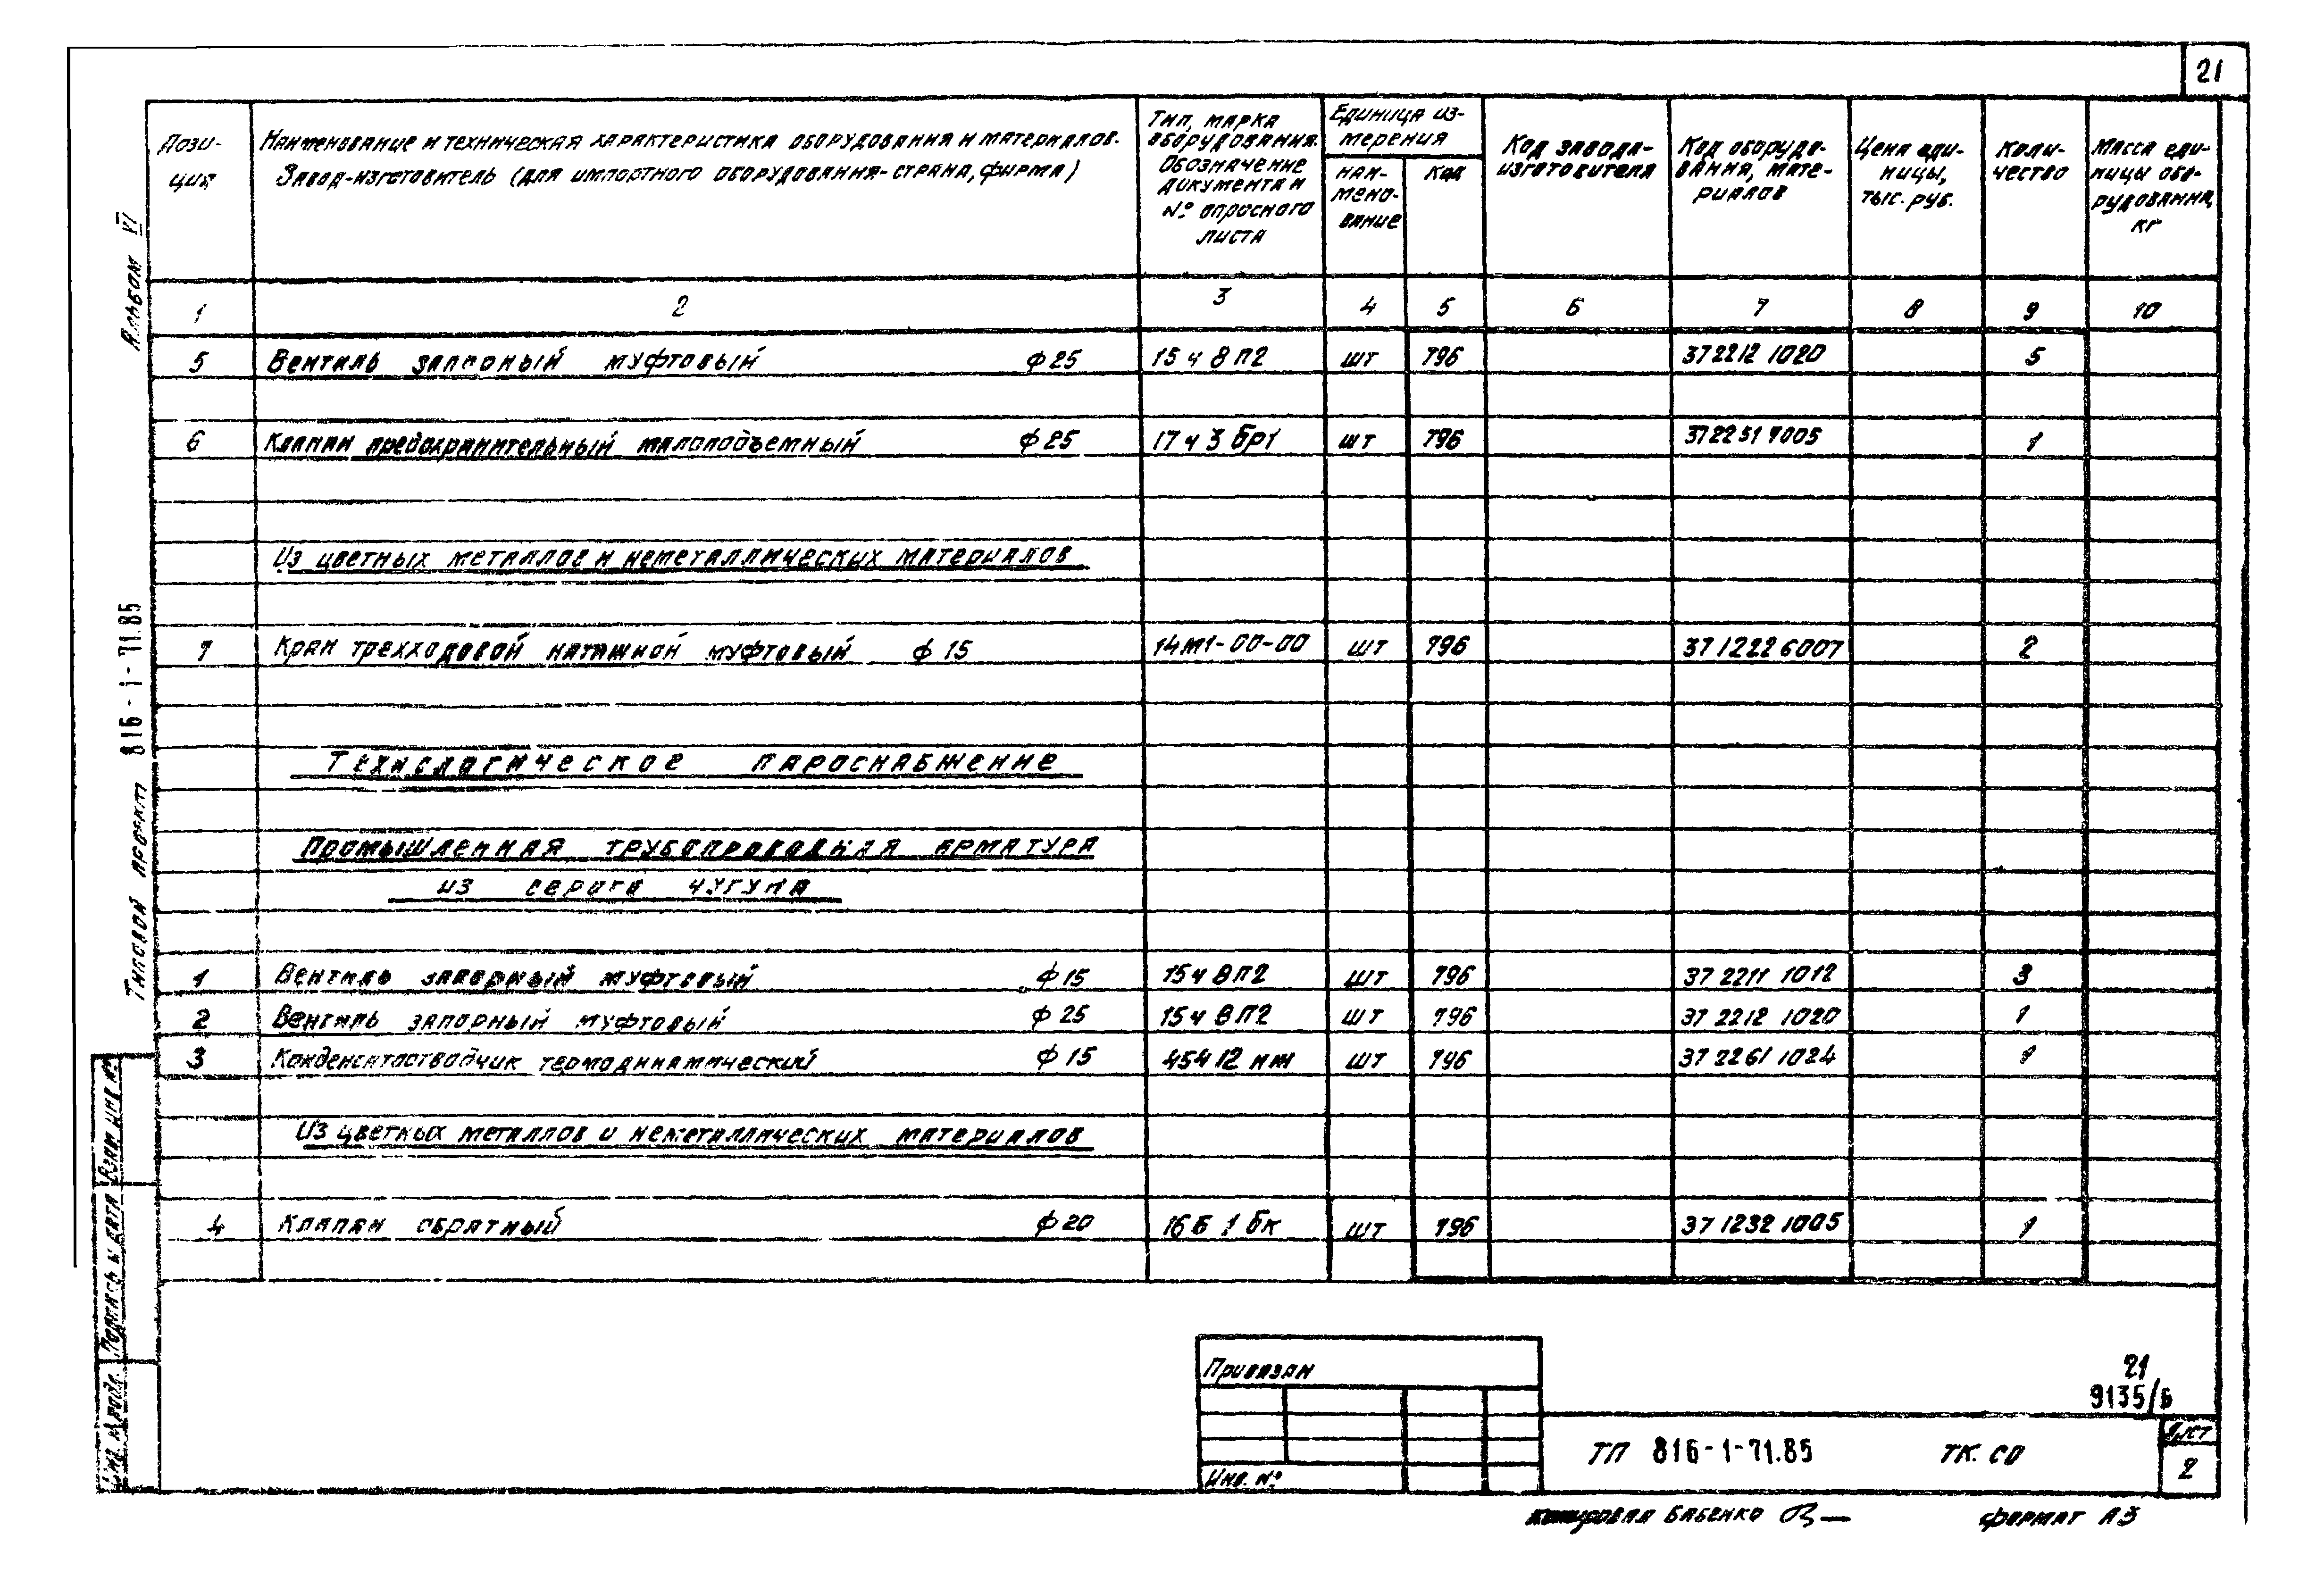 21
Пози-
ция
Наименование и техническая характеристика оборудования и материалов.
Завод-изготовитель (для импортного оборудования-страна, фирма)
Тип, марка
оборудования.
Обозначение
документа и
№ опросного
листа
Единица из-
мерения
наи-
мено-
вание
код
Код завода-
изготовителя
Код оборудо-
вания, мате-
риалов
Цена еди-
ницы,
тыс. руб.
Коли-
чество
Масса еди-
ницы обо-
рудования,
кг
1 2 3 4 5 6 7 8 9 10
5 Вентиль запорный муфтовый ф25 15ч8П2 шт 796 372212 1020 5
6 Клапан предохранительный малоподъемный ф25 17ч3бр1 шт 796 3722517005 1
Из цветных металлов и неметаллических материалов
7 Кран трехходовой натяжной муфтовый ф15 14М1-00-00 шт 796 3712226007 2
Технологическое пароснабжение
Промышленная трубопроводная арматура
из серого чугуна
1 Вентиль запорный муфтовый ф15 15ч8П2 шт 796 37 2211 1012 3
2 Вентиль запорный муфтовый ф25 15ч8П2 шт 796 37 2212 1020 1
3 Конденсатоотводчик термодинамический ф15 45ч12нж шт 796 37 2261 1024 1
Из цветных металлов и неметаллических материалов
4 Клапан обратный ф20 16Б1бк шт 796 37 1232 1005 1
Альбом VI
Типовой проект 816-1-71.85
Взам инв №
Подпись и дата
Инв. № подл.
Привязан
Инв. №
21
9135/6
ТП 816-1-71.85 ТК. СО
Лист
2
Копировал Бабенко
формат А3